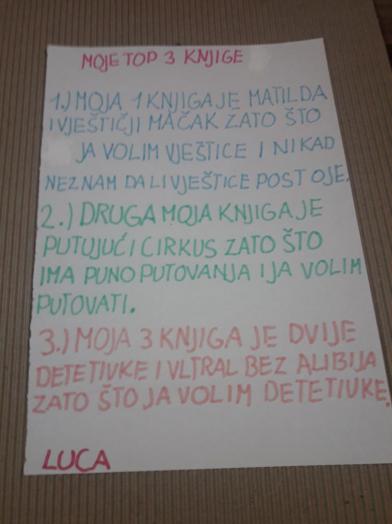 MOJE TOP 3 KNJIGE
1.) MOJA 1 KNJIGA JE MATILDA
I VJEŠTIČJI MAČAK ZATO ŠTO
JA VOLIM VJEŠTICE I NIKAD
NEZNAM DA LI VJEŠTICE POSTOJE.
2.) DRUGA MOJA KNJIGA JE
PUTUJUĆI CIRKUS ZATO ŠTO
IMA PUNO PUTOVANJA I JA VOLIM
PUTOVATI.
3.) MOJA 3 KNJIGA JE DVIJE
DETETIVKE I VLTRAL BEZ ALIBIJA
ZATO ŠTO JA VOLIM DETETIVKE.
LUCA